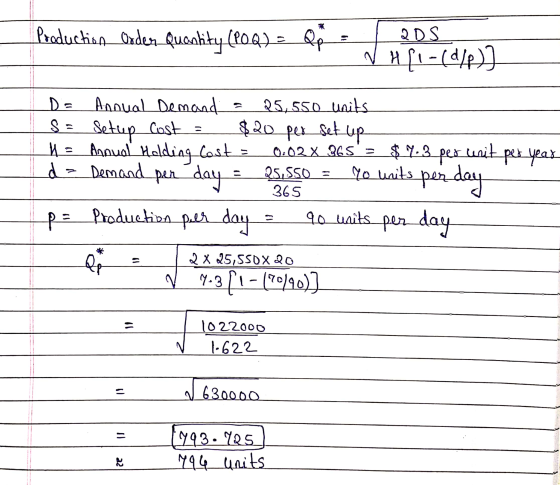 Production Order Quantity (POQ) = Qp* = √ 2DS / H[1-(d/p)]
D = Annual Demand = 25,550 units
S = Setup Cost = $20 per set up
H = Annual Holding Cost = 0.02 x 365 = $ 7.3 per unit per year
d = Demand per day = 25,550 / 365 = 70 units per day
p = Production per day = 90 units per day
Qp* = √ 2 x 25,550 x 20 / 7.3 [1 - (70/90)]
= √ 1022000 / 1.622
= √ 630000
= 793.725
≈ 794 units